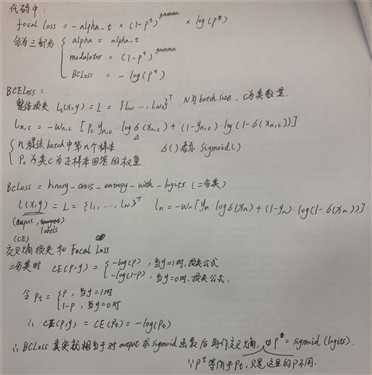 代码中:
focal loss = -alpha_t × (1-p^t)^gamma × log(p^t)
分为三部分 { alpha = alpha_t
modulator = (1-p^t)^gamma
BCLoss = -log(p^t)
BCELoss:
整体损失 L_c(x,y) = L = {l_1,c ... l_N,c}^T N为batch size, C为类数量
l_n,c = -w_n,c [P_c y_n,c · log σ(x_n,c) + (1-y_n,c) · log(1-σ(x_n,c))]
{ n 是该batch中第n个样本 σ() 表示 sigmoid()
P_c 为类C为正样本回答的权重
BCLoss = binary_cross_entropy_with_logits (二分类)
l(x,y) = L = {l_1, ..., l_N}^T l_n = -w_n[y_n log σ(x_n) + (1-y_n) log(1-σ(x_n))]
(output, labels)
(CE)
交叉熵损失和 Focal Loss
二分类时 CE(p,y) = { -log(p), 当y=1时,损失公式
-log(1-p), 当y=0时,损失公式
令 p_t = { p, 当y=1时
1-p, 当y=0时
∴ CE(p,y) = CE(p_t) = -log(p_t)
∴ BCLoss 其实就相当于对 output 求 sigmoid 函数后再作交叉熵, p^t = sigmoid(logits).
∵ p^t 等价于 p_t, 只是这里的p不同.